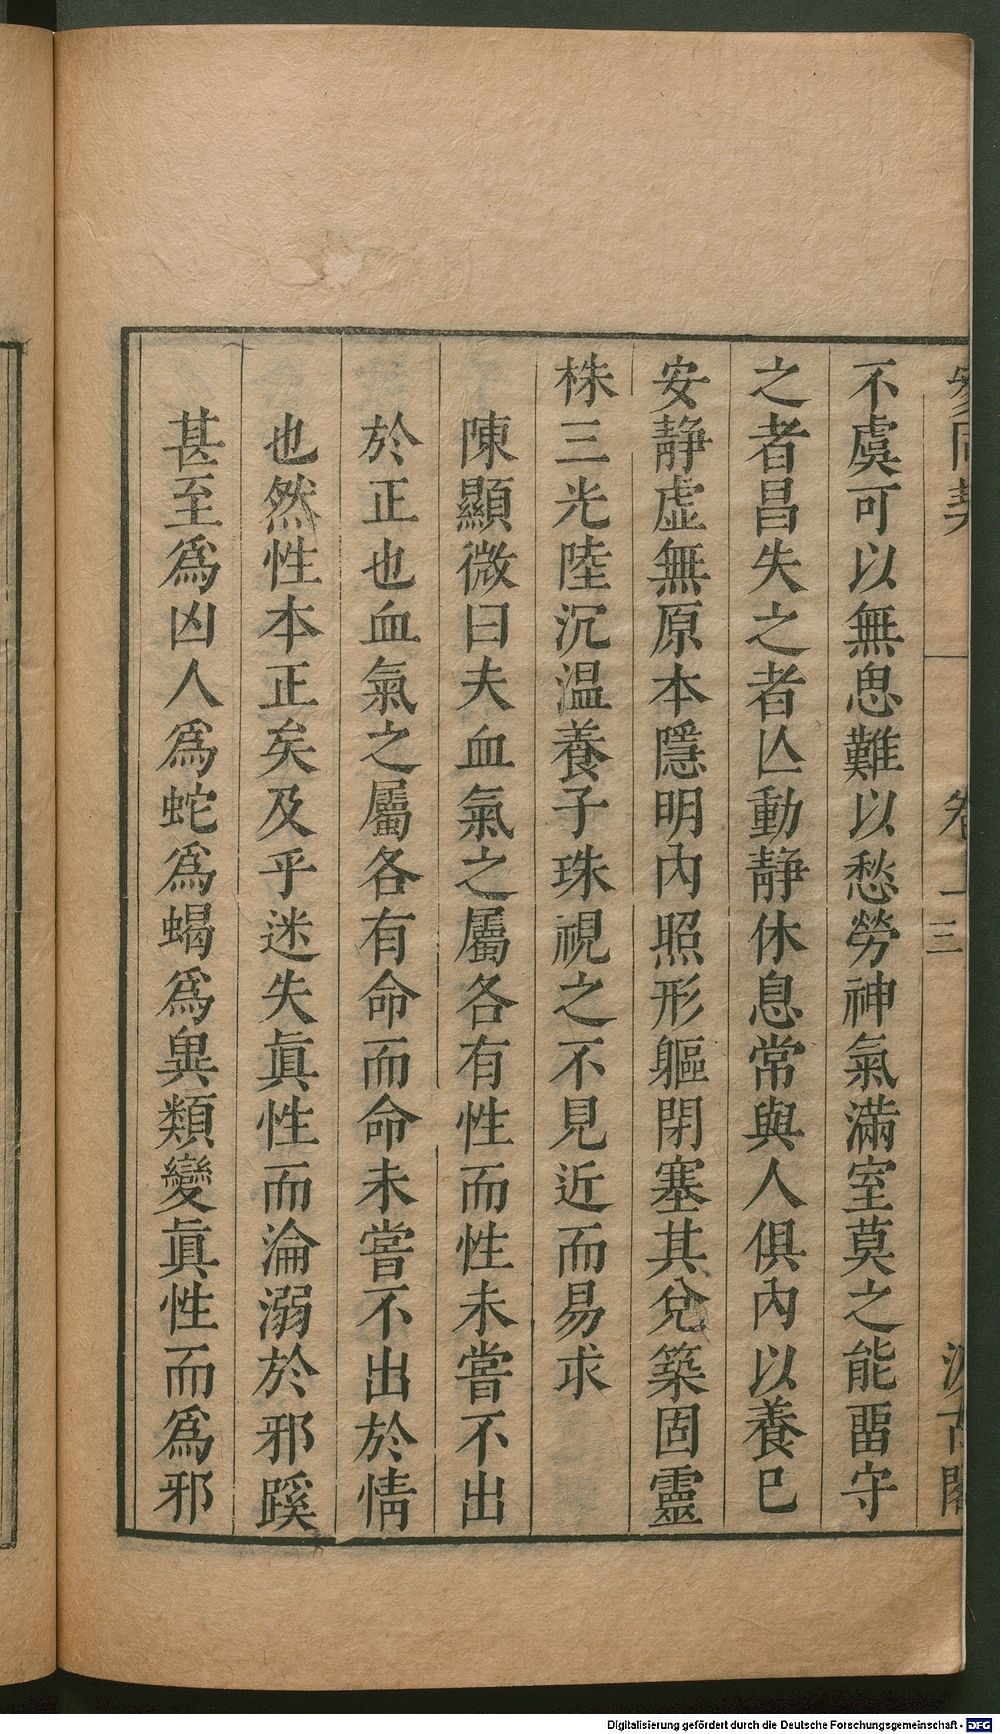 不虞可以無思難以愁勞神氣滿室莫之能畱守
之者昌失之者亾動靜休息常與人俱內以養已
安靜虛無原本隱明內照形軀閉塞其兌築固靈
株三光陸沉温養子珠視之不見近而易求
陳顯微曰夫血氣之屬各有性而性未嘗不出
於正也血氣之屬各有命而命未嘗不出於情
也然性本正矣及乎迷失眞性而淪溺於邪蹊
甚至爲凶人爲蛇爲蝎爲異類變眞性而爲邪
Digitalisierung gefördert durch die Deutsche Forschungsgemeinschaft - DFG